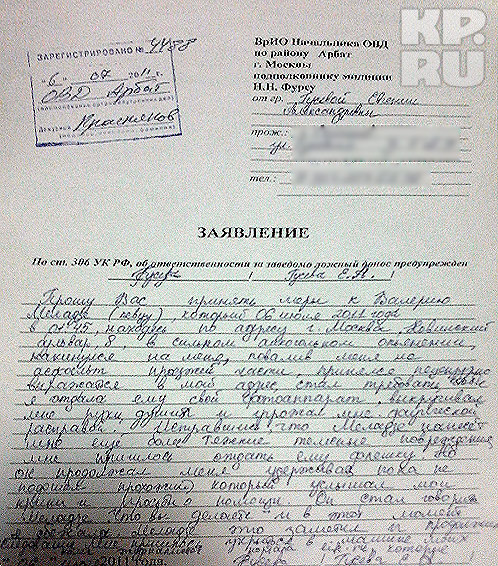 KP.
RU
ЗАРЕГИСТРИРОВАНО № 4488
"6" 07 2011 г.
ОВД Арбат
Дежурный Краснянов
ВрИО Начальника ОВД
по району Арбат
г. Москвы
подполковнику милиции
Н.Н. Фурсу
от гр. Гусевой Евгении
Александровны
прож.:
тел.:
ЗАЯВЛЕНИЕ
По ст. 306 УК РФ, об ответственности за заведомо ложный донос предупрежден
/ Гусева Е.А. /
Прошу Вас принять меры к Валерию
Меладзе (певцу), который 06 июля 2011 года
в находясь по адресу г. Москва, Новинский
бульвар, 8 в сильном алкогольном опьянении,
накинулся на меня, повалив меня на
асфальт проезжей части, принялся нецензурно
выражаться в мой адрес, стал требовать, чтобы
я отдала ему свой фотоаппарат, выкручивал
мне руки, душил и угрожал мне физической
расправой. Испугавшись, что Меладзе нанесёт
мне еще более тяжкие телесные повреждения,
мне пришлось отдать ему флешку. Но
он продолжал меня удерживать пока не
подошёл прохожий который услышал мои
крики и просьбы о помощи. Он стал говорить
Меладзе "Что вы делаете" и в этот момент
Меладзе это заметил и
в машине моих
которые
2011 года. Гусева Е.А.